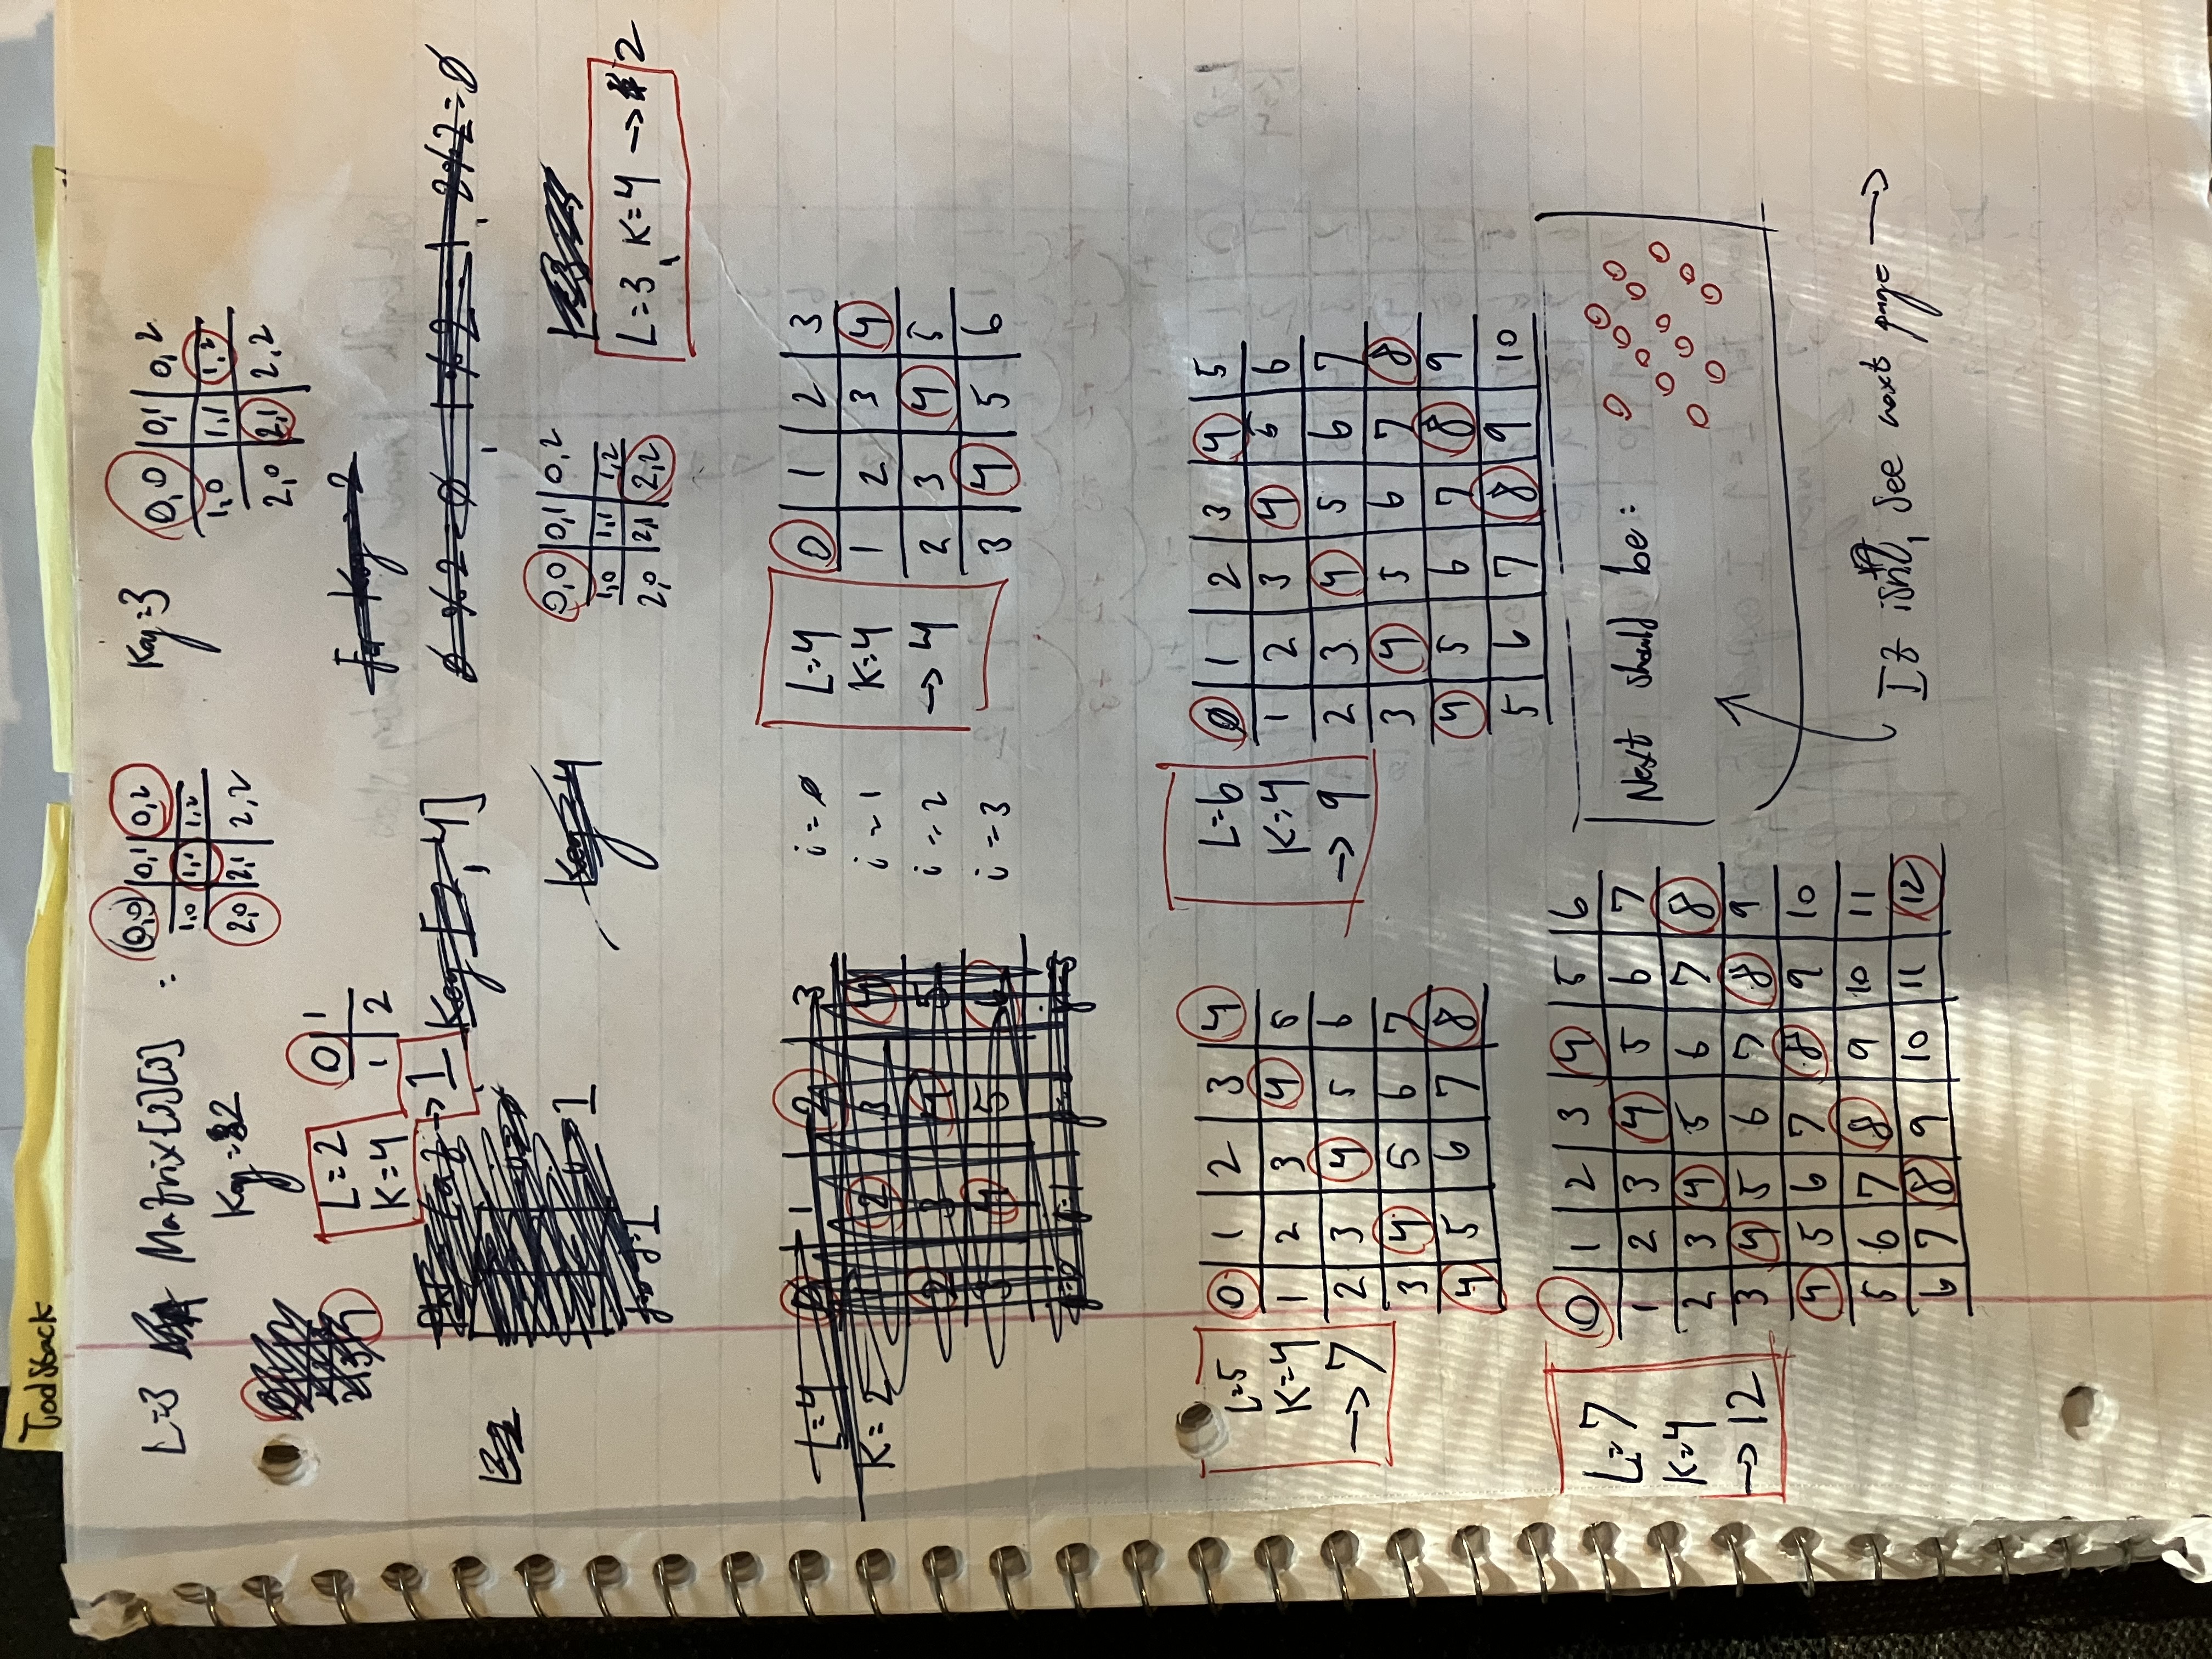 Todstack
L=3 Matrix[3][3] :
(0,0) 0,1 0,2
1,0 1,1 1,2
2,0 2,1 2,2
Key=2
Key=3
0,0 0,1 0,2
1,0 1,1 1,2
2,0 2,1 2,2
L=2
K=4
→ 1
0 1
1 2
For Key = 2
Key [2, 4]
0 % 2 = 0, 1 % 2 = 1, 2 % 2 = 0
L=2
1
Key=4
0,0 0,1 0,2
1,0 1,1 1,2
2,0 2,1 2,2
L=3, K=4 → 2
L=4
K=2
0 1 2 3
1 2 3 4
2 3 4 5
3 4 5 6
j=0 j=1 j=2 j=3
i=0
i=1
i=2
i=3
L=4
K=4
→ 4
0 1 2 3
1 2 3 4
2 3 4 5
3 4 5 6
L=5
K=4
→ 7
0 1 2 3 4
1 2 3 4 5
2 3 4 5 6
3 4 5 6 7
4 5 6 7 8
L=6
K=4
→ 9
0 1 2 3 4 5
1 2 3 4 5 6
2 3 4 5 6 7
3 4 5 6 7 8
4 5 6 7 8 9
5 6 7 8 9 10
L=7
K=4
→ 12
0 1 2 3 4 5 6
1 2 3 4 5 6 7
2 3 4 5 6 7 8
3 4 5 6 7 8 9
4 5 6 7 8 9 10
5 6 7 8 9 10 11
6 7 8 9 10 11 12
Next should be:
It isn't, see next page →